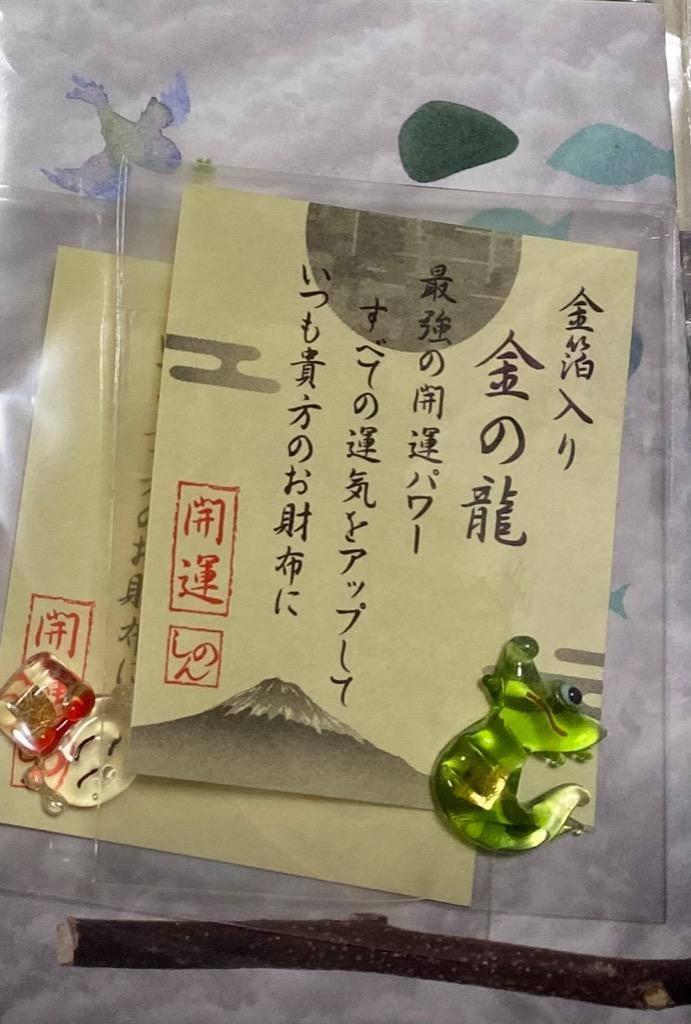 金箔入り
金の龍
最強の開運パワー
すべての運気をアップして
いつも貴方のお財布に
開運
しのん
のお財布に
開